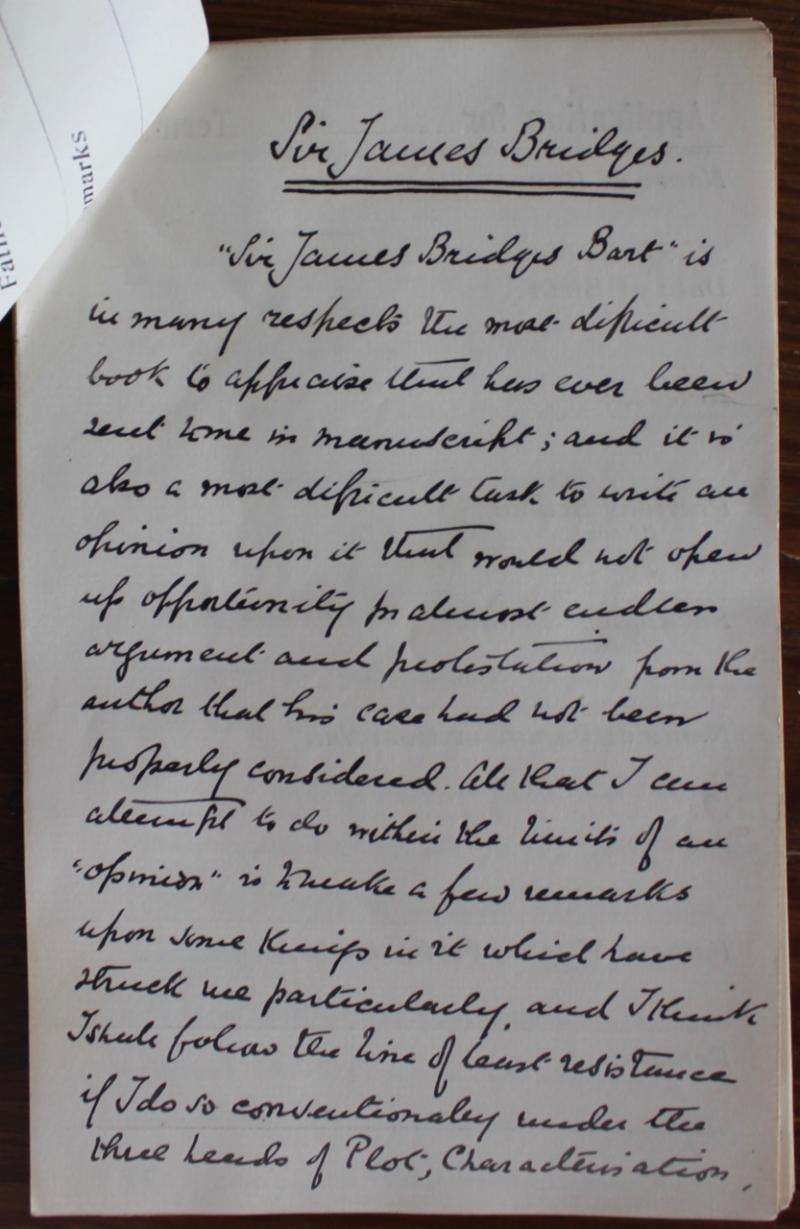 Sir James Bridges.
"Sir James Bridges Bart" is
in many respects the most difficult
book to appraise that has ever been
sent to me in manuscript; and it is
also a most difficult task to write an
opinion upon it that would not open
up opportunity for almost endless
argument and protestation from the
author that his case had not been
properly considered. All that I can
attempt to do within the limits of an
"opinion" is to make a few remarks
upon some things in it which have
struck me particularly, and I think
I shall follow the line of least resistance
if I do so conventionally under the
three heads of Plot, Characterisation,
marks